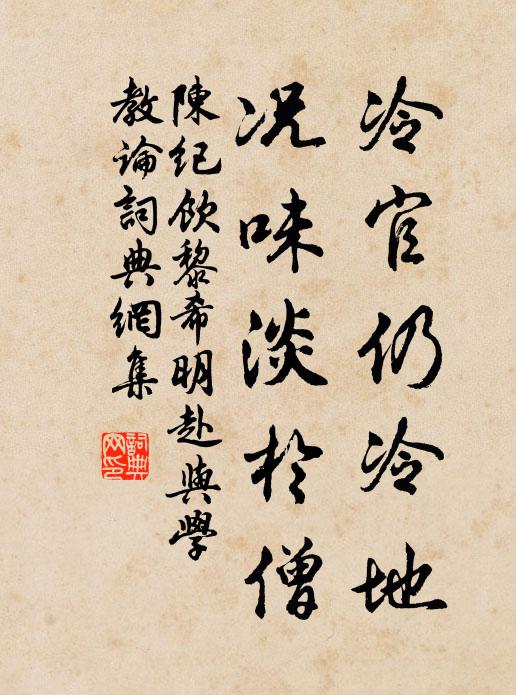 冷官仍冷地
况味淡於僧
陳紀飲黎希明赴與學
教論詞典網集
詞典網印